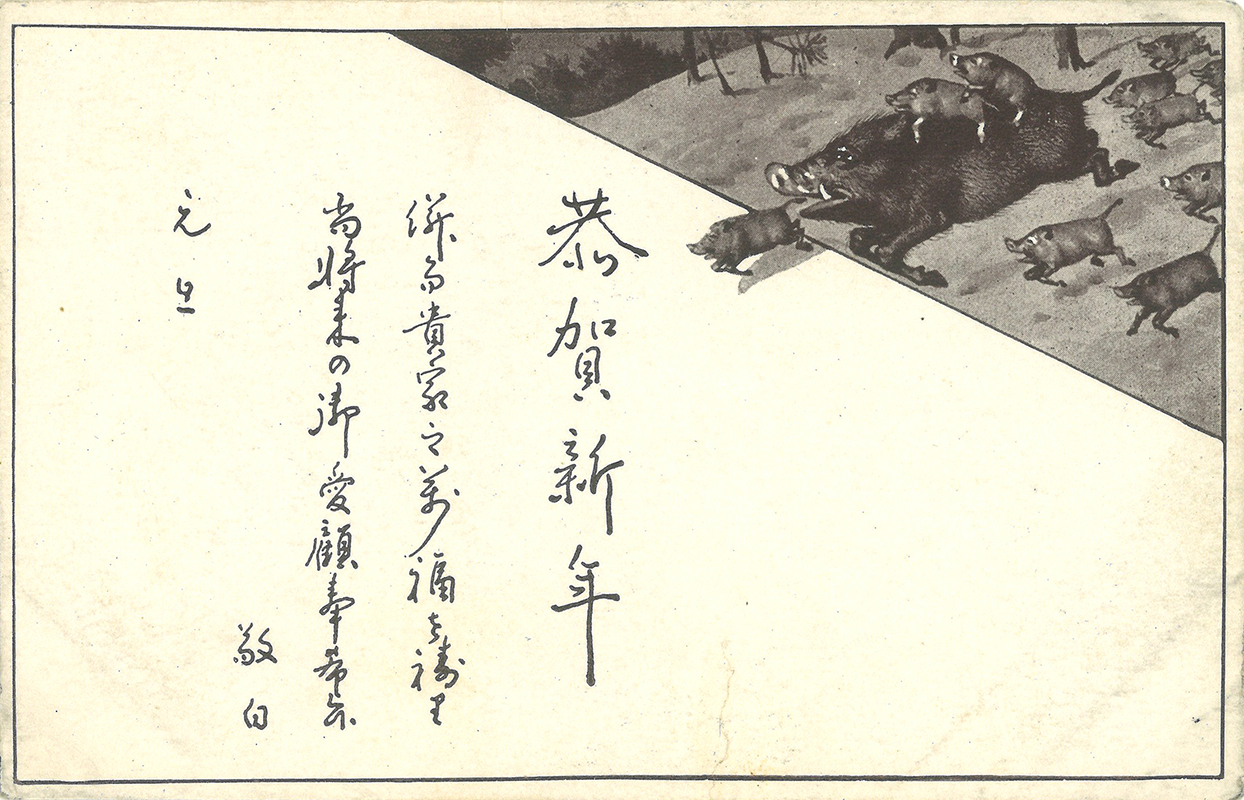 恭賀新年
併而貴家之萬福を祷里
尚将来の御愛顧奉希候
敬白
元旦